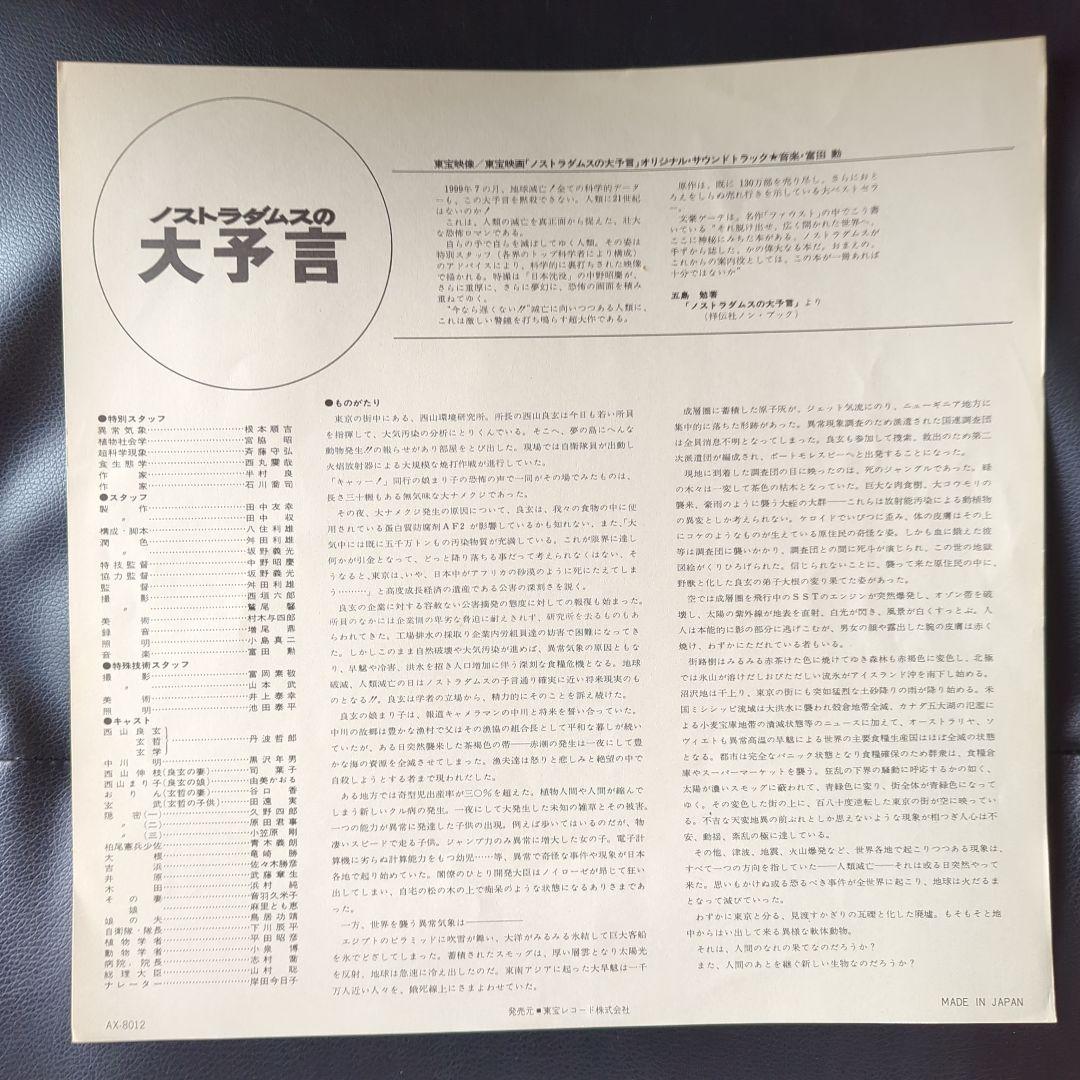 ノストラダムスの
大予言
東宝映像／東宝映画「ノストラダムスの大予言」オリジナル・サウンドトラック★音楽・富田 勲
1999年7の月、地球滅亡！全ての科学的データ
ーも、この大予言を黙殺できない。人類に21世紀
はないのか！
これは、人類の滅亡を真正面から捉えた、壮大
な恐怖ロマンである。
自らの手で自らを滅ぼしてゆく人類。その姿は
特別スタッフ（各界のトップ科学者により構成）
のアドバイスにより、科学的に裏打ちされた映像
で描かれる。特撮は「日本沈没」の中野昭慶が、
さらに重厚に、さらに夢幻に、恐怖の画面を積み
重ねてゆく。
“今なら遅くない!!”滅亡に向いつつある人類に、
これは激しい警鐘を打ち鳴らす超大作である。
原作は、既に 130万部を売り尽し、さらにおと
ろえをしらぬ売れ行きを示している大ベストセラ
ー。
文豪ゲーテは、名作「ファウスト」の中でこう書
いている“それ脱け出せ、広く開かれた世界へ、
ここに神秘にみちた本がある。ノストラダムスが
手ずから誌した、かの偉大なる本だ。おまえの、
これからの案内役としては、この本が一冊あれば
十分ではないか”
五島 勉著
「ノストラダムスの大予言」より
（祥伝社ノン・ブック）
●特別スタッフ
異常気象……根本順吉
植物社会学……宮脇 昭
超科学現象……斉藤守弘
食生態学……西丸震哉
作家……半村 良
作家……石川喬司
●スタッフ
製作……田中友幸
〃……田中 収
構成・脚本……八住利雄
潤色……舛田利雄
〃……坂野義光
特技監督……中野昭慶
協力監督……坂野義光
監督……舛田利雄
撮影……西垣六郎
〃……鷲尾 馨
美術……村木与四郎
録音……増尾 鼎
照明……小島真二
音楽……富田 勲
●特殊技術スタッフ
撮影……富岡素敬
〃……山本 武
美術……井上泰幸
照明……池田泰平
●キャスト
西山良玄
玄哲……丹波哲郎
玄学
中川 明……黒沢年男
西山伸枝(良玄の妻)……司 葉子
西山まり子(良玄の娘)……由美かおる
おりん(玄哲の妻)……谷口 香
玄武(玄哲の子供)……田遠 実
隠密(一)……久野四郎
〃(二)……原田君事
〃(三)……小笠原 剛
柏尾憲兵少佐……青木義朗
大根……竜崎 勝
吉浜……佐々木勝彦
井原……武藤章生
木田……浜村 純
その妻……音羽久米子
娘……麻里とも恵
娘の夫……鳥居功靖
自衛隊・隊長……下川辰平
植物学者……平田昭彦
動物学者……小泉 博
病院・院長……志村 喬
総理大臣……山村 聡
ナレーター……岸田今日子
●ものがたり
東京の街中にある、西山環境研究所。所長の西山良玄は今日も若い所員
を指揮して、大気汚染の分析にとりくんでいる。そこへ、夢の島にへんな
動物発生!!の報らせがあり部屋をとび出した。現場では自衛隊員が出動し
火焔放射器による大規模な焼打作戦が進行していた。
「キャッー！」同行の娘まり子の恐怖の声で一同がその場でみたものは、
長さ三十糎もある無気味な大ナメクジであった。
その夜、大ナメクジ発生の原因について、良玄は、我々の食物の中に使
用されている蛋白質防腐剤AF2が影響しているかも知れない、また、「大
気中には既に五千万トンもの汚染物質が充満している。これが限界に達し
何かが引金となって、どっと降り落ちる事だって考えられなくはない、そ
うなると、東京は、いや、日本中がアフリカの砂漠のように死にたえてしま
う………」と高度成長経済の遺産である公害の深刻さを説く。
良玄の企業に対する容赦ない公害摘発の態度に対しての報復も始まった。
所員のなかには企業側の卑劣な脅迫に耐えきれず、研究所を去るものもあ
らわれてきた。工場排水の採取り企業内労組員達の妨害で困難になってき
た。しかしこのまま自然破壊や大気汚染が進めば、異常気象の原因ともな
り、旱魃や冷害、洪水を招き人口増加に伴う深刻な食糧危機となる。地球
破滅、人類滅亡の日はノストラダムスの予言通り確実に近い将来現実のも
のとなる!!。良玄は学者の立場から、精力的にそのことを訴え続けた。
良玄の娘まり子は、報道キャメラマンの中川と将来を誓い合っていた。
中川の故郷は豊かな漁村で父はその漁協の組合長として平和な暮しが続い
ていたが、ある日突然襲来した茶褐色の帯――赤潮の発生は一夜にして豊
かな海の資源を全滅させてしまった。漁夫達は怒りと悲しみと絶望の中で
自殺しようとする者まで現われだした。
ある地方では奇型児出産率が三〇%を超えた。植物人間や人間が縮んで
しまう新しいクル病の発生。一夜にして大発生した未知の雑草とその被害。
一つの能力が異常に発達した子供の出現。例えば歩いてはいるのだが、物
凄いスピードで走る子供。ジャンプ力のみ異常に増大した女の子。電子計
算機に劣らぬ計算能力をもつ幼児……等、異常で奇怪な事件や現象が日本
各地で起り始めていた。閣僚のひとり開発大臣はノイローゼが昂じて狂い
出してしまい、自宅の松の木の上で痴呆のような状態になるありさまであ
った。
一方、世界を襲う異常気象は――
エジプトのピラミッドに吹雪が舞い、大洋がみるみる氷結して巨大客船
を氷でとざしてしまった。蓄積されたスモッグは、厚い層雲となり太陽光
を反射、地球は急速に冷え出したのだ。東南アジアに起った大旱魃は一千
万人近い人々を、餓死線上にさまよわせていた。
成層圏に蓄積した原子灰が、ジェット気流にのり、ニューギニア地方に
集中的に落ちた形跡があった。異常現象調査のため派遣された国連調査団
は全員消息不明となってしまった。良玄も参加して捜索、救出のため第二
次派遣団が編成され、ポートモレスビーへと出発することになった。
現地に到着した調査団の目に映ったのは、死のジャングルであった。緑
の木々は一変して茶色の枯木となっていた。巨大な肉食樹、大コウモリの
襲来、豪雨のように襲う大蛭の大群――これらは放射能汚染による動植物
の異変としか考えられない。ケロイドでいびつに歪み、体の皮膚はその上
にコケのようなものが生えている原住民の奇怪な姿。しかも血に餓えた彼
等は調査団に襲いかかり、調査団との間に死斗が演じられ、この世の地獄
図絵がくりひろげられた。信じられないことに、襲って来た原住民の中に、
野獣と化した良玄の弟子大根の変り果てた姿があった。
空では成層圏を飛行中のSSTのエンジンが突然爆発し、オゾン帯を破
壊し、太陽の紫外線が地表を直射、白光が閃き、風景が白くすっとぶ。人
人は本能的に影の部分に逃げこむが、男女の顔や露出した腕の皮膚は赤く
焼け、わずかにただれている者もいる。
街路樹はみるみる赤茶けた色に焼けてゆき森林も赤褐色に変色し、北極
では氷山が溶けだしおびただしい流氷がアイスランド沖を南下し始める。
沼沢地は干上り、東京の街にも突如猛烈な土砂降りの雨が降り始める。米
国ミシシッピ流域は大洪水に襲われ穀倉地帯全滅、カナダ五大湖の氾濫に
よる小麦宝庫地帯の潰滅状態等のニュースに加えて、オーストラリヤ、ソ
ヴィエトも異常高温の旱魃による世界の主要食糧生産国はほぼ全滅の状態
となる。都市は完全なパニック状態となり食糧確保のため群衆は、食糧倉
庫やスーパーマーケットを襲う。狂乱の下界の騒動に呼応するかの如く、
太陽が濃いスモッグに蔽われて、青緑色に変り、街全体が青緑色になって
ゆく。その変色した街の上に、百八十度逆転した東京の街が空に映ってい
る。不吉な天変地異の前ぶれとしか思えないような現象が相つぎ人心は不
安、動揺、紊乱の極に達している。
その他、津波、地震、火山爆発など、世界各地で起こりつつある現象は、
すべて一つの方向を指していた――人類滅亡――それは或る日突然やって
来た。思いもかけぬ或る恐るべき事件が全世界に起こり、地球は火だるま
となって滅びていった。
わずかに東京と分る、見渡すかぎりの瓦礫と化した廃墟。もそもそと地
中からはい出して来る異様な軟体動物。
それは、人間のなれの果てなのだろうか？
また、人間のあとを継ぐ新しい生物なのだろうか？
発売元■東宝レコード株式会社
MADE IN JAPAN
AX-8012